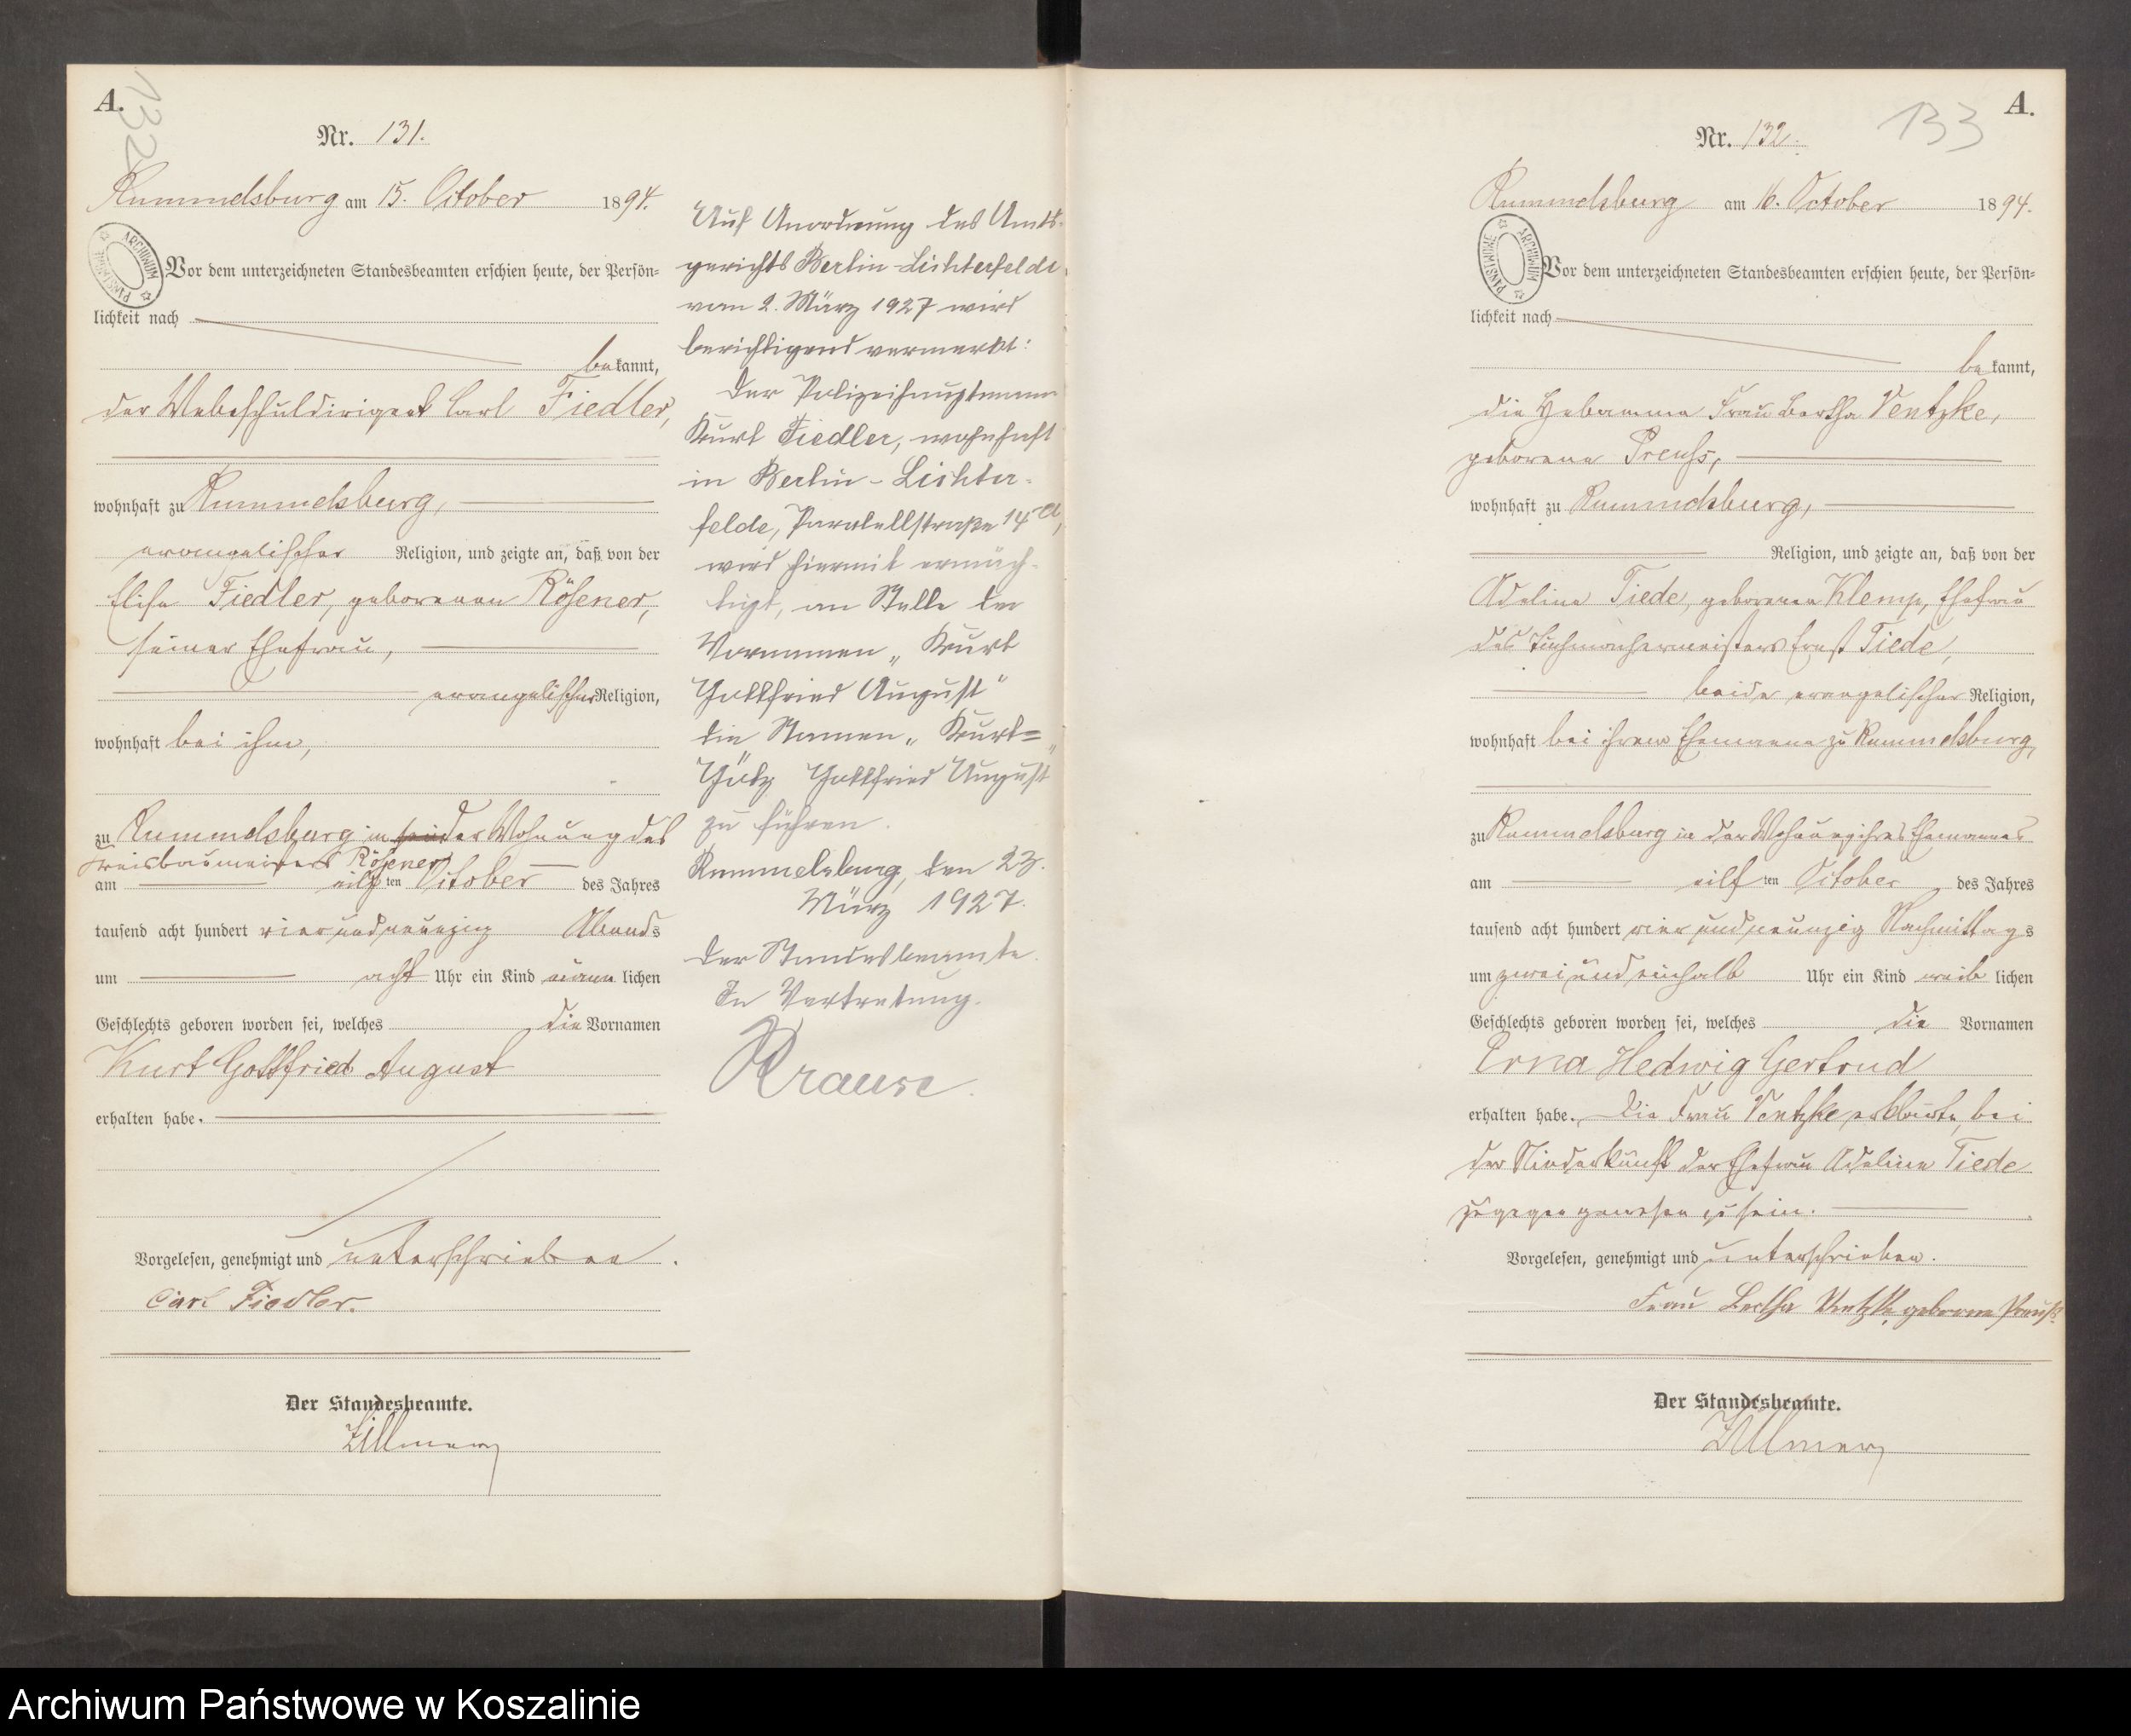 A.
132
Nr. 131.
Rummelsburg am 15. October 1894.
ARCHIWUM PAŃSTWOWE
Vor dem unterzeichneten Standesbeamten erschien heute, der Persön=
lichkeit nach
bekannt,
der Webeschuldirigent Carl Fiedler,
wohnhaft zu Rummelsburg,
evangelischer Religion, und zeigte an, daß von der
Elise Fiedler, geborenen Rösener,
seiner Ehefrau,
evangelischer Religion,
wohnhaft bei ihm,
zu Rummelsburg in der Wohnung des
Kreisbaumeisters Rösener
am eilf ten October des Jahres
tausend acht hundert vier und neunzig Abends
um acht Uhr ein Kind männlichen
Geschlechts geboren worden sei, welches die Vornamen
Kurt Gottfried August
erhalten habe.
Vorgelesen, genehmigt und unterschrieben.
Carl Fiedler.
Der Standesbeamte.
Zillmer
Auf Anordnung des Amts-
gerichts Berlin-Lichterfelde
vom 2. März 1927 wird
berichtigend vermerkt:
Der Polizeihauptmann
Kurt Fiedler, wohnhaft
in Berlin-Lichter-
felde, Paralellstraße 14a,
wird hiermit ermäch-
tigt, an Stelle der
Vornamen „Kurt
Gottfried August"
die Namen „Kurt=
Götz Gottfried August"
zu führen.
Rummelsburg, den 23.
März 1927.
Der Standesbeamte.
In Vertretung.
Krause.
A.
133
Nr. 132.
Rummelsburg am 16. October 1894.
ARCHIWUM PAŃSTWOWE
Vor dem unterzeichneten Standesbeamten erschien heute, der Persön=
lichkeit nach
bekannt,
die Hebamme Frau Bertha Ventzke,
geborene Preuß,
wohnhaft zu Rummelsburg,
Religion, und zeigte an, daß von der
Adeline Tiede, geborenen Klemp, Ehefrau
des Tuchmachermeisters Ernst Tiede,
beide evangelischer Religion,
wohnhaft bei ihrem Ehemanne zu Rummelsburg,
zu Rummelsburg in der Wohnung ihres Ehemannes
am eilf ten October des Jahres
tausend acht hundert vier und neunzig Nachmittags
um zwei und einhalb Uhr ein Kind weib lichen
Geschlechts geboren worden sei, welches die Vornamen
Erna Hedwig Gertrud
erhalten habe. Die Frau Ventzke erklärte, bei
der Niederkunft der Ehefrau Adeline Tiede
zugegen gewesen zu sein.
Vorgelesen, genehmigt und unterschrieben.
Frau Bertha Ventzke, geborene Preuß.
Der Standesbeamte.
Zillmer
Archiwum Państwowe w Koszalinie